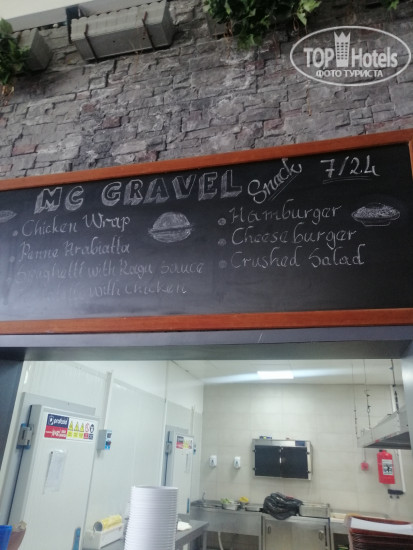 TOP Hotels
ФОТО ТУРИСТА
MC GRAVEL
Snack
7/24
Chicken Wrap
Penne Arabiatta
Spaghetti with Ragu Sauce
with Chicken
Hamburger
Cheeseburger
Crushed Salad